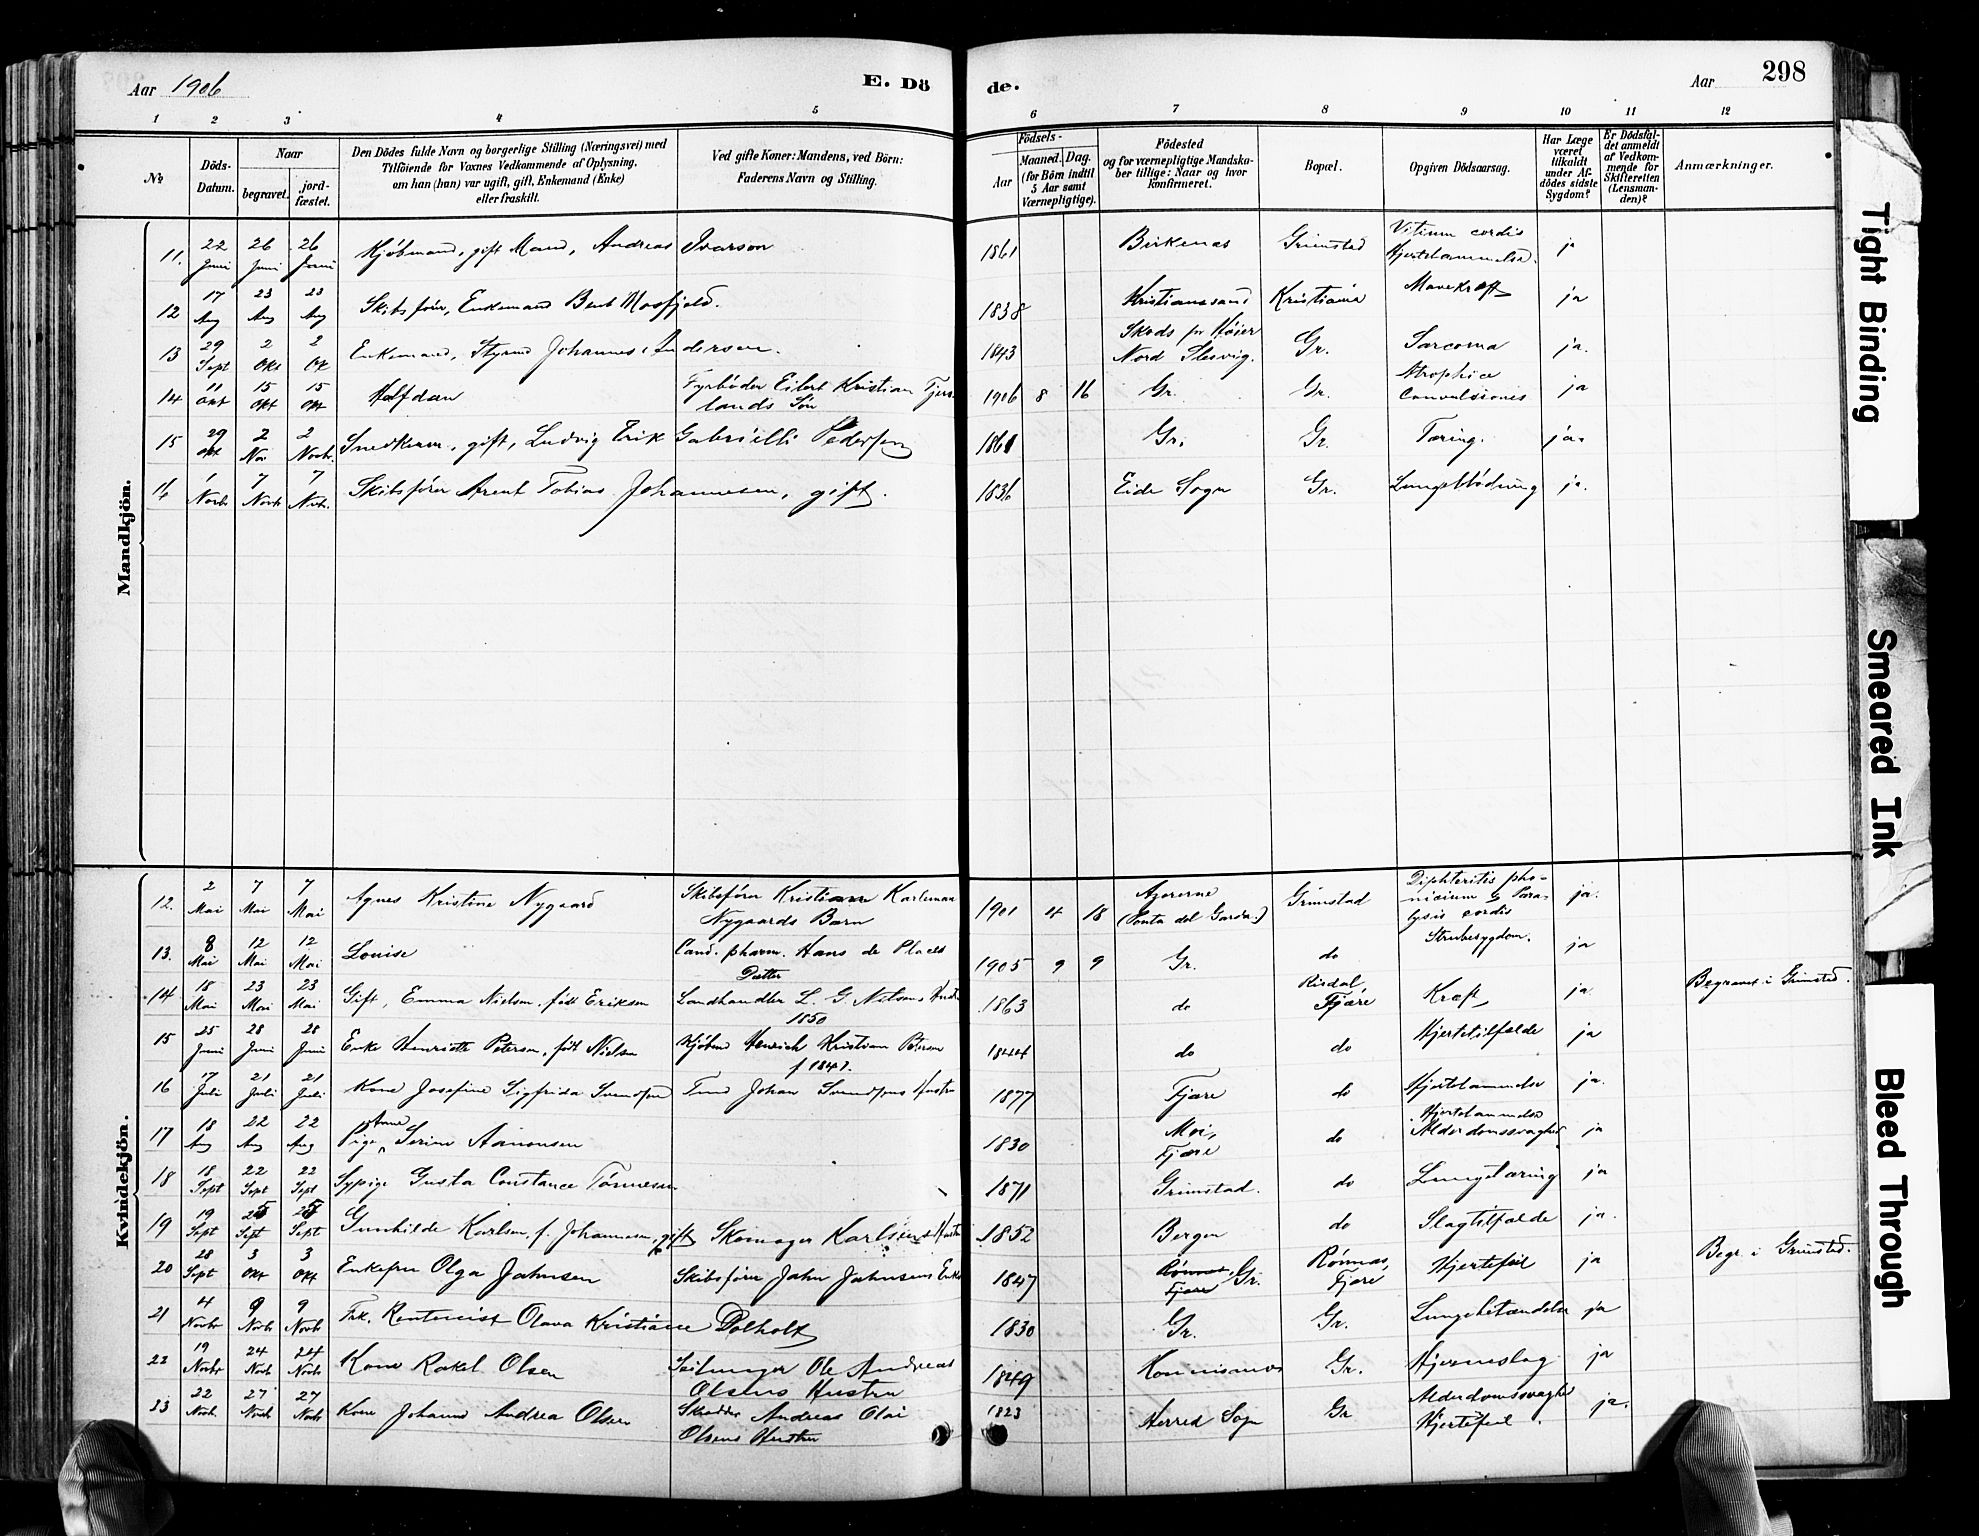 Aar 1906
E. Dö
de.
Aar
298
1 2 3 4 5 6 7 8 9 10 11 12
№
Döds-
Datum.
Naar
begravet.
jord-
fæstet.
Den Dödes fulde Navn og borgerlige Stilling (Næringsvei) med
Tilföiende for Voxnes Vedkommende af Oplysning,
om han (hun) var ugift, gift, Enkemand (Enke)
eller fraskilt.
Ved gifte Koner: Mandens, ved Börn:
Faderens Navn og Stilling.
Födsels-
Aar
Maaned. Dag.
(for Börn indtil
5 Aar samt
Værnepligtige).
Födested
og for værnepligtige Mandska-
ber tillige: Naar og hvor
konfirmeret.
Bopæl.
Opgiven Dödsaarsag.
Har Læge
været
tilkaldt
under Af-
dödes sidste
Sygdom?
Er Dödsfal-
det anmeldt
af Vedkom-
mende for
Skifteretten
(Lensman-
den)?
Anmærkninger.
Mandkjön.
11. 22 Juni 26 Juni 26 Juni Kjöbmand, gift Mand, Andreas Ivarson 1861 Birkenæs Grimstad Vitium cordis ja
Hjertelammelse.
12 17 Aug 23 Aug 23 Aug Skibsförer, Enkemand Bent Mosfjeld. 1838 Kristianssand Kristiania Mavekræft ja
13 29 Sept 2 Okt 2 Okt Enkemand, Styrmd Johannes Andersen. 1843 Skads pr Höier Gr. Sarcoma ja.
Nord Slesvig.
14 11 Okt 15 Okt 15 Okt Halfdan Fyrböder Eilert Kristian Fjers- 1906 8 16 Gr. Gr. Atrophie ja
lands Sön Convulsiones
15 29 Okt 2 Nov 2 Novbr. Snedkerm., gift, Ludvig Erik Gabrielli Pedersen 1861 Gr. Gr. Tæring. ja.
16 1 Novbr 7 Novbr 7 Nvbr. Skibsförer Arent Tobias Johannesen, gift. 1836 Eide Sogn Gr. Lungeblödning ja.
Kvindekjön.
12. 2 Mai 7 Mai 7 Mai Agnes Kristine Nygaard Skibsförer Kristian Karleman 1901 4 18 Azorerne Grimstad Diphteritis pha- ja.
Nygaards Barn (Ponta del Garda.) Para-
lysis cordis
13. 8 Mai 12 Mai 12 Mai Louise Cand. pharm. Hans de Placés 1905 9 9 Gr. do Strubesygdom. ja
Datter
14 18 Mai 23 Mai 23 Mai Gift, Emma Nielsen, född Eriksen Landhandler L. G Nielsens Hustru 1863 do Risdal, Fjære Kræft ja. Begravet i Grimstad.
1850
15 25 Juni 28 Juni 28 Juni Enke Henriette Petersen, född Nielsen Kjöbmd Henrich Kristian Petersen 1844 do do Hjertetilfælde ja
f 1841.
16 17 Juli 21 Juli 21 Juli Kone Josefine Sigfrida Svendsen Tmd Johan Svendsens Hustru 1877 Fjære do Hjertelammelse ja.
17 18 Aug 22 Aug 22 Aug Pige, Anne Serine Aanonsen 1830 Moi, Fjære do Hjertelammelse ja
Alderdomssvaghed
18 18 Sept 22 Sept 22 Sept Sypige Gusta Constance Tönnesen 1871 Grimstad. do Lungetæring ja
19 19 Sept 25 Sept 25 Sept Gunhilde Karlsen, f. Johannesen, gift Skomager Karlsens Hustru 1852 Bergen do Slagtilfælde ja.
20 28 Sept 3 Okt 3 Okt Enkefru Olga Jahnsen Skibsförer Jahn Jahnsens Enke 1847 Rönnes, Fjære Gr. Rönnæs, Fjære Hjertefeil ja Begr. i Grimstad.
21 4 Novbr 9 Novbr 9 Novbr Frk. Rentenist Olava Kristiane Dolholt 1830 Gr. Gr. Lungebetændelse ja
22 19 Novbr 24 Novbr 24 Novbr Kone Rakel Olsen Seilmager Ole Andreas 1849 Hommisanæs Gr. Hjerneslag ja
Olsens Hustru
23 22 Novb. 27 Novb 27 Novb Kone Johanne Andrea Olsen Skrædder Andreas Olai 1823 Herred Sogn Gr Alderdomssvaghed ja.
Olsens Hustru Hjertefeil.
Tight Binding
Smeared Ink
Bleed Through